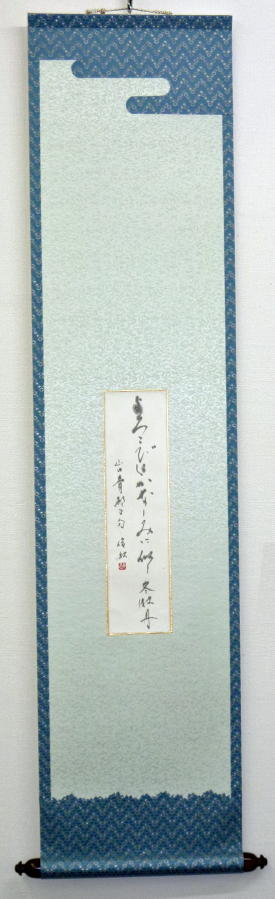 よろこびはかなしみに似し冬牡丹
山口青邨の句